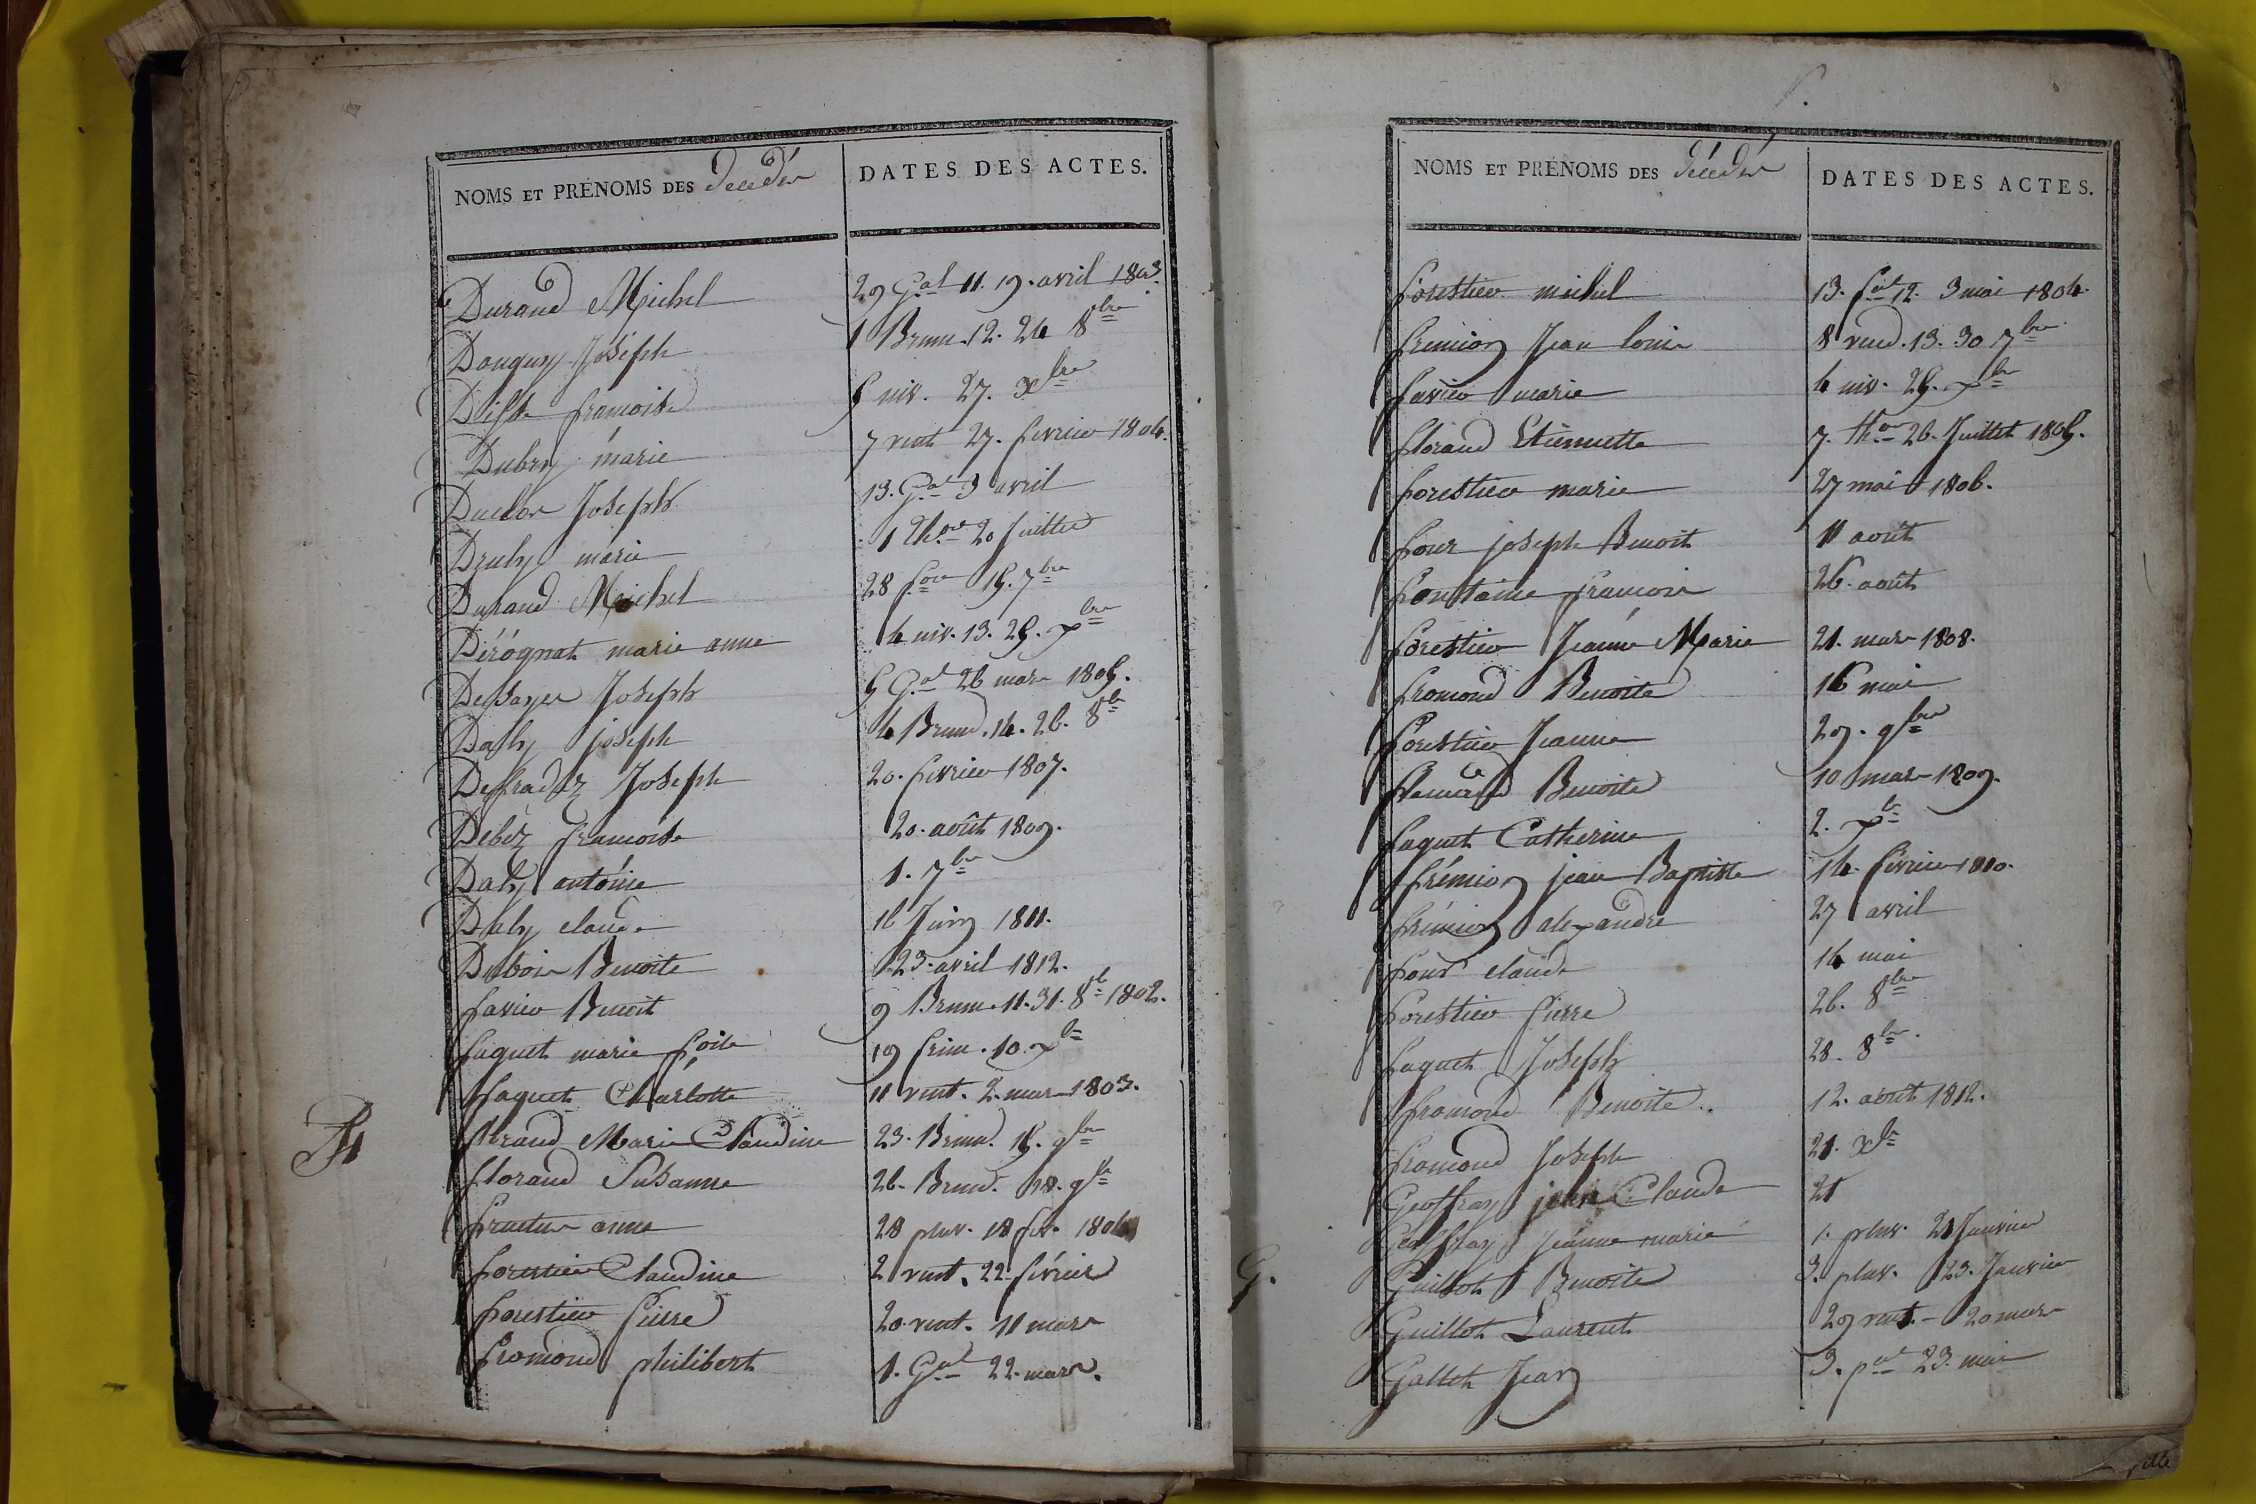 NOMS ET PRÉNOMS DES Décédés
DATES DES ACTES.
Durand Michel 29 Gal 11. 19. avril 1803.
Donguy Joseph 1 Brum. 12. 24 8bre
françoise 5 niv. 27. Xbre
Dubry marie 7 vent 27. fevrier 1804.
Duclos Joseph 13. Gal 3 avril
Druhy marie 1 Thor 20 Juillet
Durand Michel 28 for 15. 7bre
Dérognat marie anne 4 niv. 13. 25. xbre
Joseph 5 Gal 26 mars 1805.
Dalry joseph 4 Brum. 14. 26. 8bre
Defradaz Joseph 20. fevrier 1807.
Débéz françoise 20. août 1809.
antoine 1. 7bre
Daly claude 16 Juin 1811.
Dubois Benoite 23. avril 1812.
F
favier Benoit 9 Brum. 11. 31. 8bre 1802.
faguet marie 19 frim. 10. xbre
faguet Charlotte 11 vent. 2. mars 1803.
Marie Claudine 23. Brum. 15. 9bre
florand Susanne 26. Brum. 18. 9bre
anne 28 pluv. 18 fev. 1804
forestier Claudine 2 vent. 22. février
forestier Pierre 20. vent. 11 mars
fromond philibert 1. Gal 22. mars.
NOMS ET PRÉNOMS DES Décédés
DATES DES ACTES.
forestier michel 13. fal 12. 3 mai 1804.
fremion Jean louis 8 vend. 13. 30 7bre
favier marie 4 niv. 25. xbre
florand Etiennette 7. thor 26. Juillet 1805.
forestier marie 27 mai 1806.
four joseph Benoit 11 août
fontaine françois 26. août
forestier Jeanne Marie 21. mars 1808.
fromond Benoite 16 mai
forestier Jeanne 29. 9bre
Benoite 10 mars 1809.
faguet Catherine 2. xbre
frémion jean Baptiste 14. février 1810.
frémion alexandre 27 avril
four claude 14 mai
forestier Pierre 26. 8bre
faguet Joseph 28. 8bre.
fromond Benoite.. 12. août 1812.
fromond Joseph 21. xbre
G.
Geoffray jean Claude 21
Geoffray Jeanne marie 1. pluv. 21 Janvier
Guillot Benoite 3. pluv. 23. Janvier
Guillot Laurent 29 vent. - 20 mars
Gallet Jean 3. pal 23. mai